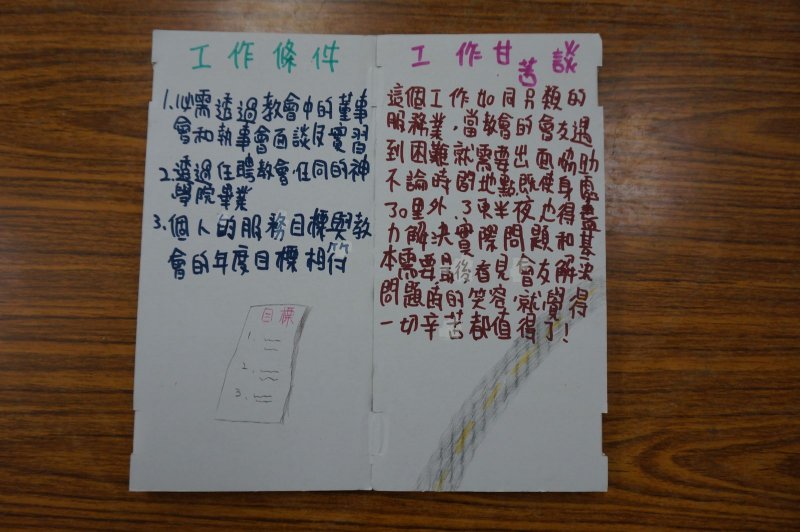 工作條件
1.必需透過教會中的董事
會和執事會面談及實習
2.透過任聘教會任同的神
學院畢業
3.個人的服務目標與教
會的年度目標相符
目標
1.
2.
3.
工作甘苦談
這個工作如同另類的
服務業，當教會的會友遇
到困難就需要出面協助
不論時間地點既使身處
30里外，3更半夜也得盡
力解決實際問題和基
本需要最後看見會友解決
問題後的笑容，就覺得
一切辛苦都值得了！